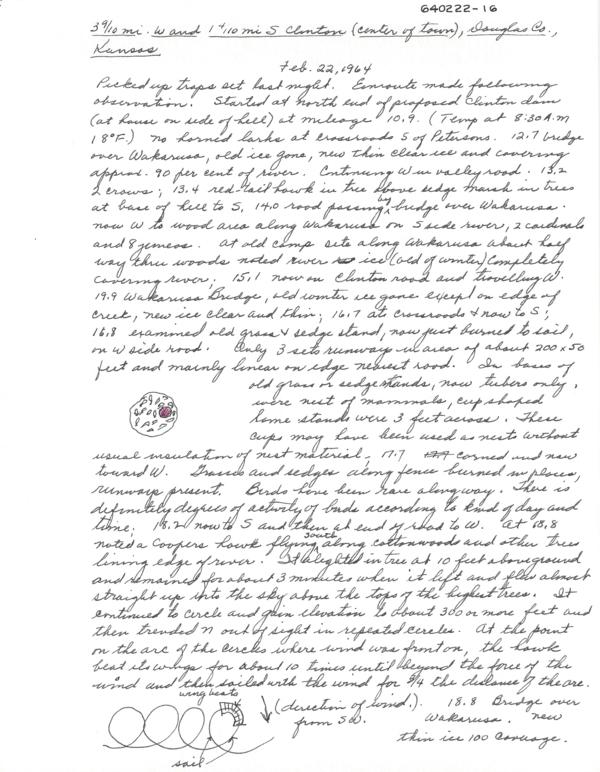 640222-16
3 9/10 mi. W and 1 4/10 mi S Clinton (center of town), Douglas Co.,
Kansas
Feb. 22, 1964
Picked up traps set last night. Enroute made following
observation. Started at north end of proposed Clinton dam
(at house on side of hill) at mileage 10.9. (Temp at 8:30 A.M
18°F.) no horned larks at crossroads S of Petersons. 12.7 bridge
over Wakarusa, old ice gone, new thin clear ice and covering
approx. 90 per cent of river. Continuing W in valley road. 13.2
2 crows; 13.4 red-tail hawk in tree above sedge marsh in trees
at base of hill to S, 14.0 road passing by bridge over Wakarusa.
now W to wood area along Wakarusa on S side river, 2 cardinals
and 8 juncos. At old camp site along Wakarusa about half
way thru woods noted river ice (old of winter) completely
covering river. 15.1 now on Clinton road and travelling W.
19.9 Wakarusa Bridge, old winter ice gone except on edge of
creek, new ice clear and thin; 16.7 at crossroads & now to S;
16.8 examined old grass & sedge stand, now just burned to soil,
on W side road. Only 3 sets runways in area of about 200 x 50
feet and mainly linear on edge nearest road. In bases of
old grass or sedge stands, now tubers only,
were nest of mammals, cup shaped
Some stands were 3 feet across. These
cups may have been used as nests without
usual insulation of nest material. 17.7 corned and now
toward W. Grasses and sedges along fence burned in places,
runways present. Birds have been rare along way. There is
definitely degrees of activity of birds according to kind of day and
time; 18.2 now to S and then at end of road to W. At 18.8
noted a Coopers hawk flying south along cottonwoods and other trees
lining edge of river. It alighted in tree at 10 feet above ground
and remained for about 3 minutes when it left and flew almost
straight up into the sky above the tops of the highest trees. It
continued to circle and gain elevation to about 300 or more feet and
then trended N out of sight in repeated circles. At the point
on the arc of the circles where wind was front on, the hawk
beat its wings for about 10 times until beyond the force of the
wind and then sailed with the wind for 3/4 the distance of the arc.
wing beats
(direction of wind.). 18.8 Bridge over
from SW. Wakarusa. new
thin ice 100 coverage.
sail